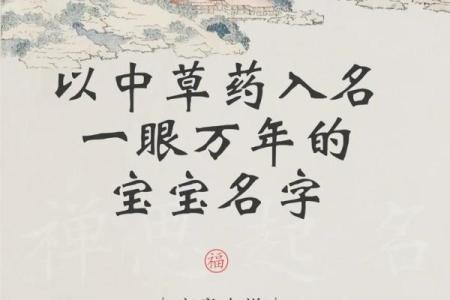 以中草药入名
一眼万年的
宝宝名字
福